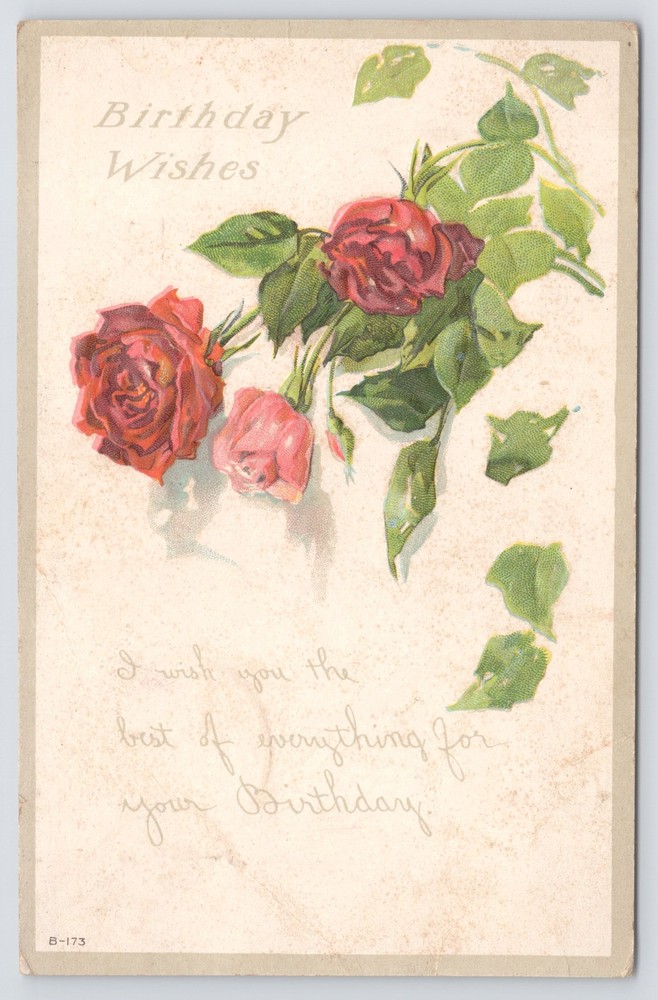 Birthday
Wishes
I wish you the
best of everything for
your Birthday.
B-173